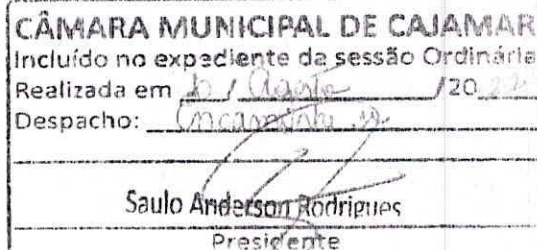 CÂMARA MUNICIPAL DE CAJAMAR
Incluído no expediente da sessão Ordinária
Realizada em 10 / Agosto /20
Despacho: Encaminha-se
Saulo Anderson Rodrigues
Presidente